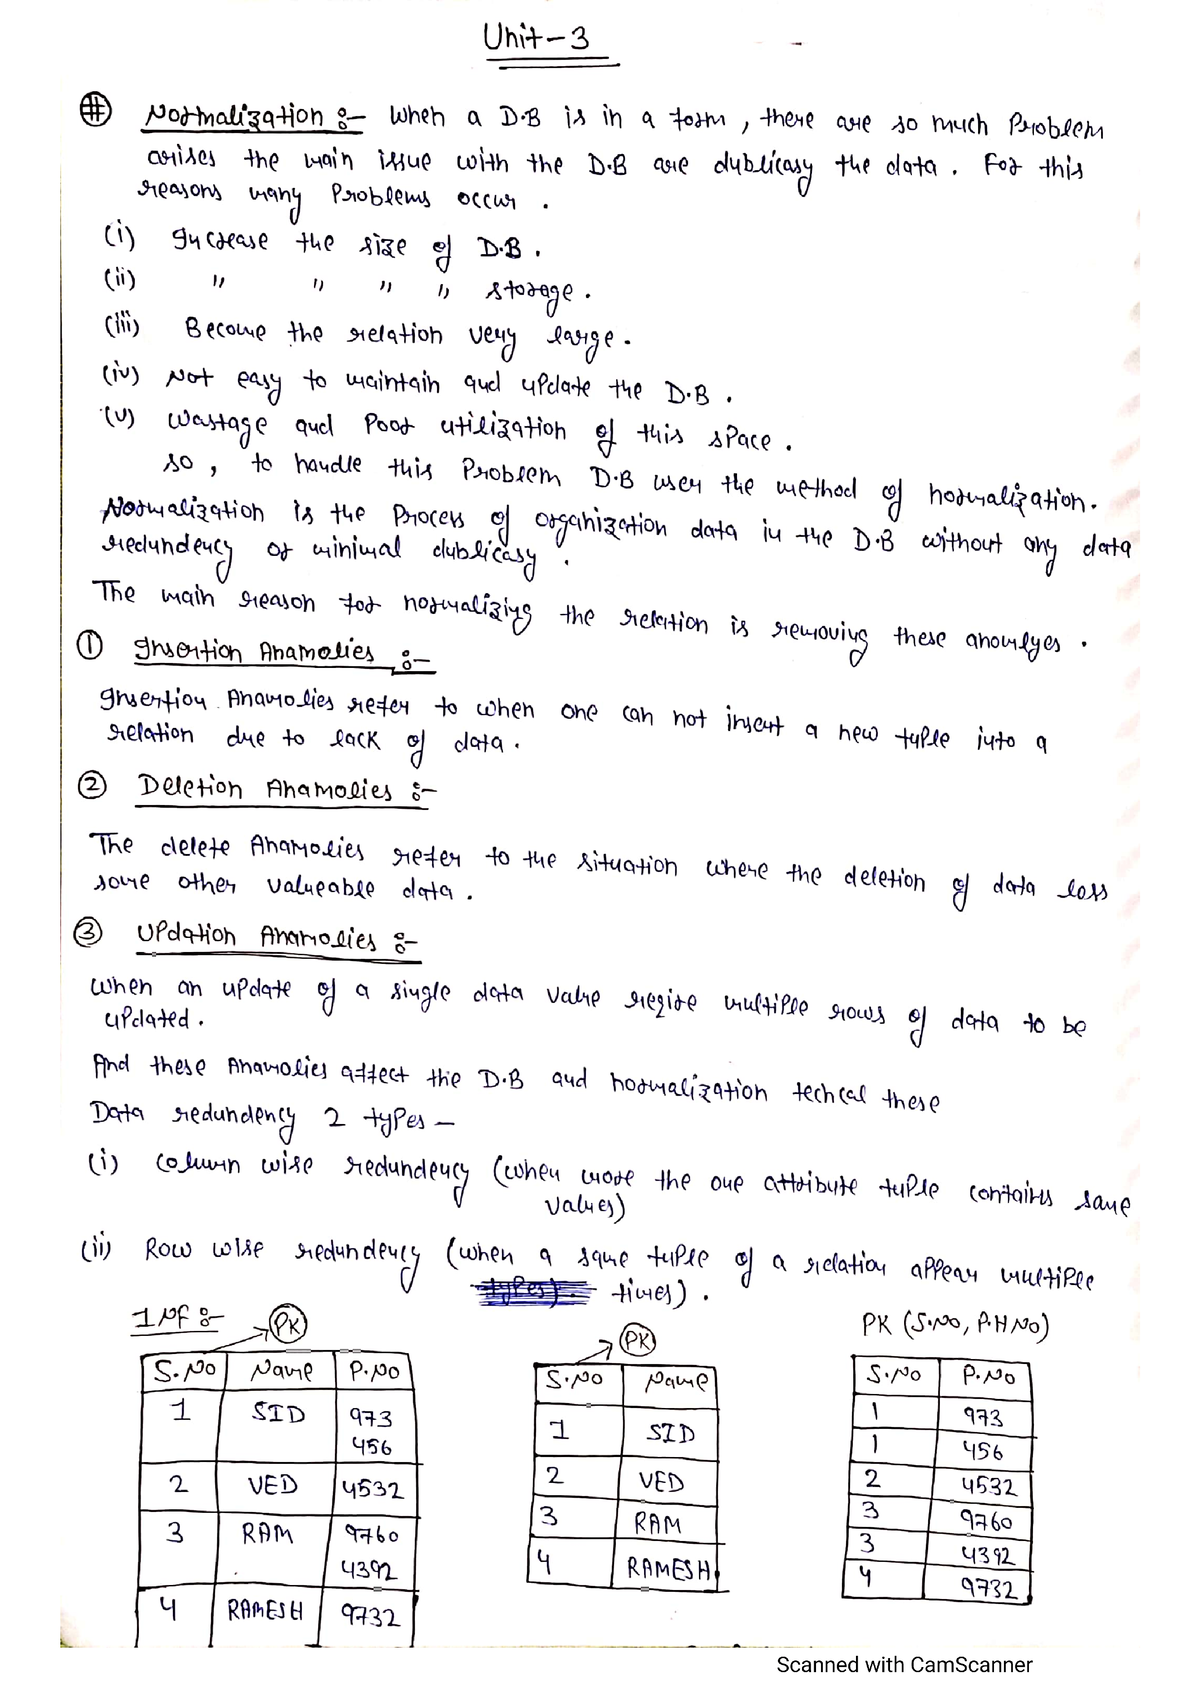 Unit-3
# Normalization :- When a D.B is in a form, there are so much Problem
arises the main issue with the D.B are dublicasy the data. For this
reasons many Problems occur.
(i) Increase the size of D.B.
(ii) " " " " storage.
(iii) Become the relation very large.
(iv) Not easy to maintain and update the D.B.
(v) Wastage and Poor utilization of this space.
so, to handle this Problem D.B user the method of normalization.
Normalization is the Process of organization data in the D.B without any data
redundency or minimal dublicasy.
The main reason for normalizing the relation is removing these anomlyes.
① Insertion Anamolies :-
Insertion Anamolies refer to when one can not insert a new tuple into a
relation due to lack of data.
② Deletion Anamolies :-
The delete Anamolies refer to the situation where the deletion of data loss
some other valueable data.
③ Updation Anamolies :-
When an update of a single data value reqire multiple rows of data to be
updated.
And these Anamolies affect the D.B and normalization techcal these
Data redundency 2 types -
(i) Column wise redundency (when more the one attribute tuple contains same
values)
(ii) Row wise redundency (when a same tuple of a relation appear multiple
times).
1 NF :- PK PK PK (S.NO, P.H NO)
S.NO Name P.NO
1 SID 973
456
2 VED 4532
3 RAM 9760
4392
4 RAMESH 9732
S.NO Name
1 SID
2 VED
3 RAM
4 RAMESH
S.NO P.NO
1 973
1 456
2 4532
3 9760
3 4392
4 9732
Scanned with CamScanner